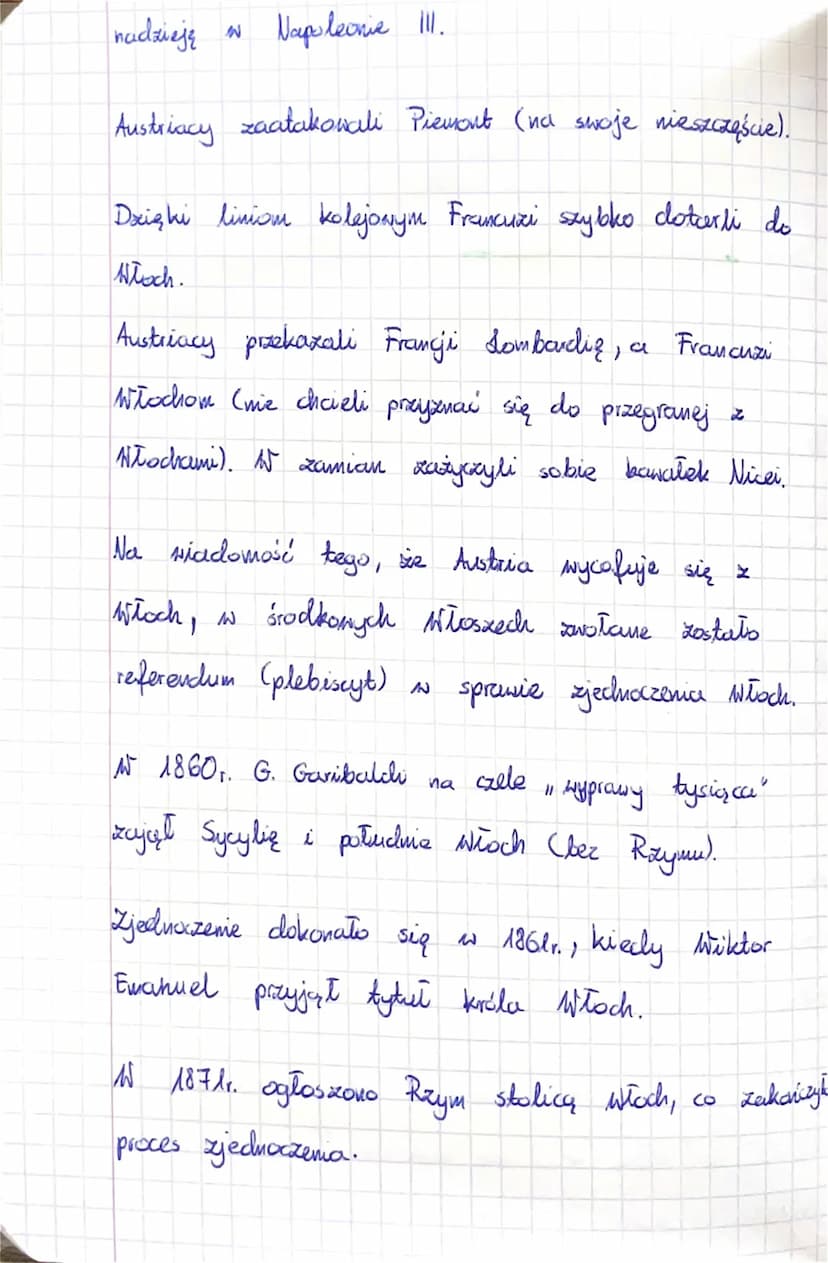 nadzieję w Napoleonie III.
Austriacy zaatakowali Piemont (na swoje nieszczęście).
Dzięki liniom kolejowym Francuzi szybko dotarli do
Włoch.
Austriacy przekazali Francji Lombardię, a Francuzi
Włochom (nie chcieli przyznać się do przegranej z
Włochami). W zamian zażyczyli sobie kawałek Nicei.
Na wiadomość tego, że Austria wycofuje się z
Włoch, w środkowych Włoszech zwołane zostało
referendum (plebiscyt) w sprawie zjednoczenia Włoch.
W 1860r. G. Garibaldi na czele „wyprawy tysiąca"
zajął Sycylię i południe Włoch (bez Rzymu).
Zjednoczenie dokonało się w 1861r., kiedy Wiktor
Emanuel przyjął tytuł króla Włoch.
W 1871r. ogłoszono Rzym stolicą Włoch, co zakończył
proces zjednoczenia.